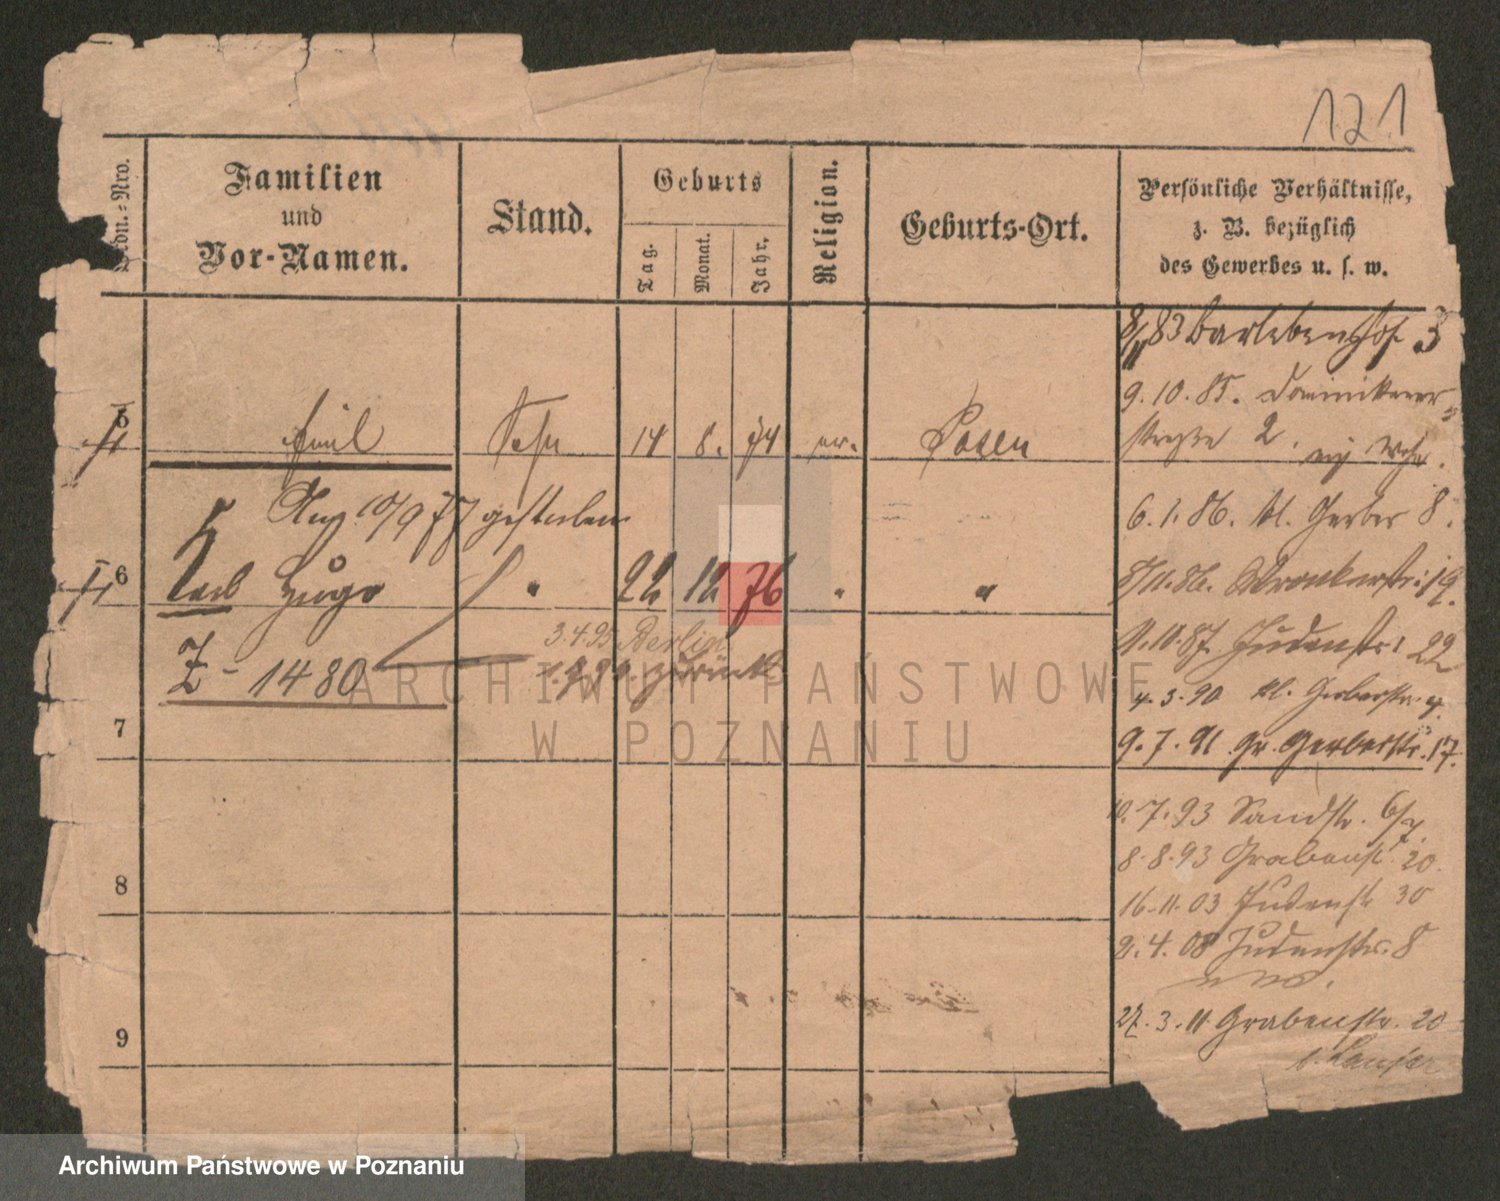 121
Familien
und
Vor-Namen.
Stand.
Geburts
Tag. Monat. Jahr.
Religion.
Geburts-Ort.
Persönliche Verhältnisse,
z. B. bezüglich
des Gewerbes u. s. w.
8/11 83 Bartlebenshof 3
9.10.85. Dominikaner
strasse 2.
5 Emil Sohn 14 8. 74 ev. Posen
10/9 77 gestorben
6. 1. 86. kl. Gerber 8.
6 Hugo " 22 12 76 " "
8/11.86. Wronkerstr: 19.
3.4.95 Berlin
zurück
Z - 1480
11.10.87. Judenstr: 22
4.3.90 kl. Gerberstr. 4.
7
9.7.91 Gr. Gerberstr. 17.
10.7.93 Sandstr. 6/7.
8.8.93 Grabenst. 20
8
16.11.03 Judenstr 30
2.4.08 Judenstr. 8
9
27.3.11 Grabenstr. 20
ARCHIWUM PAŃSTWOWE
W POZNANIU
Archiwum Państwowe w Poznaniu